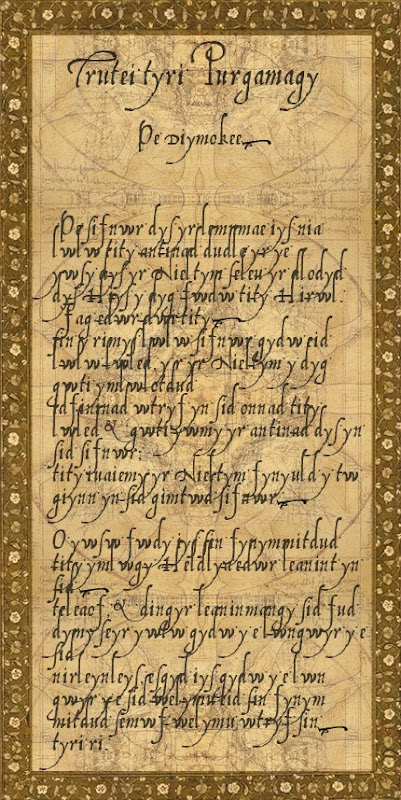 Trutei tyri Purgamagy
De Diymokee
De sifnwr dysyrdemmmae iys nia
lwlw tity antinad dudle yr ye
ywsy qysyr Nieltym seleu yr dlodyd
fwdw tity Hirwl:
Jag edwr dwr tity
gydw eid
lwlw wled, ysr yr Nieltym y dyg
qwti ymlwlwtdud
idfanmad wtry f yn sid onnad tity
lwled & qwti ywmy yr antinad dysyn
sid sifnwr:
tity ruaiemysyr Nieltym fynyuld y tw
giynn yn sid gimtwd sifnwr
O ywsw fwdy iys sin fynymmitdud
tity yml wgy Heldlyaedwr leanint yn
sid
teleaof & dingyr leaninmangy sid fud
dymy seyr y wlw gydw y e lwngwyr y e
sid
nirleynleys, esgyd iys gydw y e l wn
qwyr y e sid welymuteid sin fynym
mitdud semwf welymu wtryf sin
tyriri.